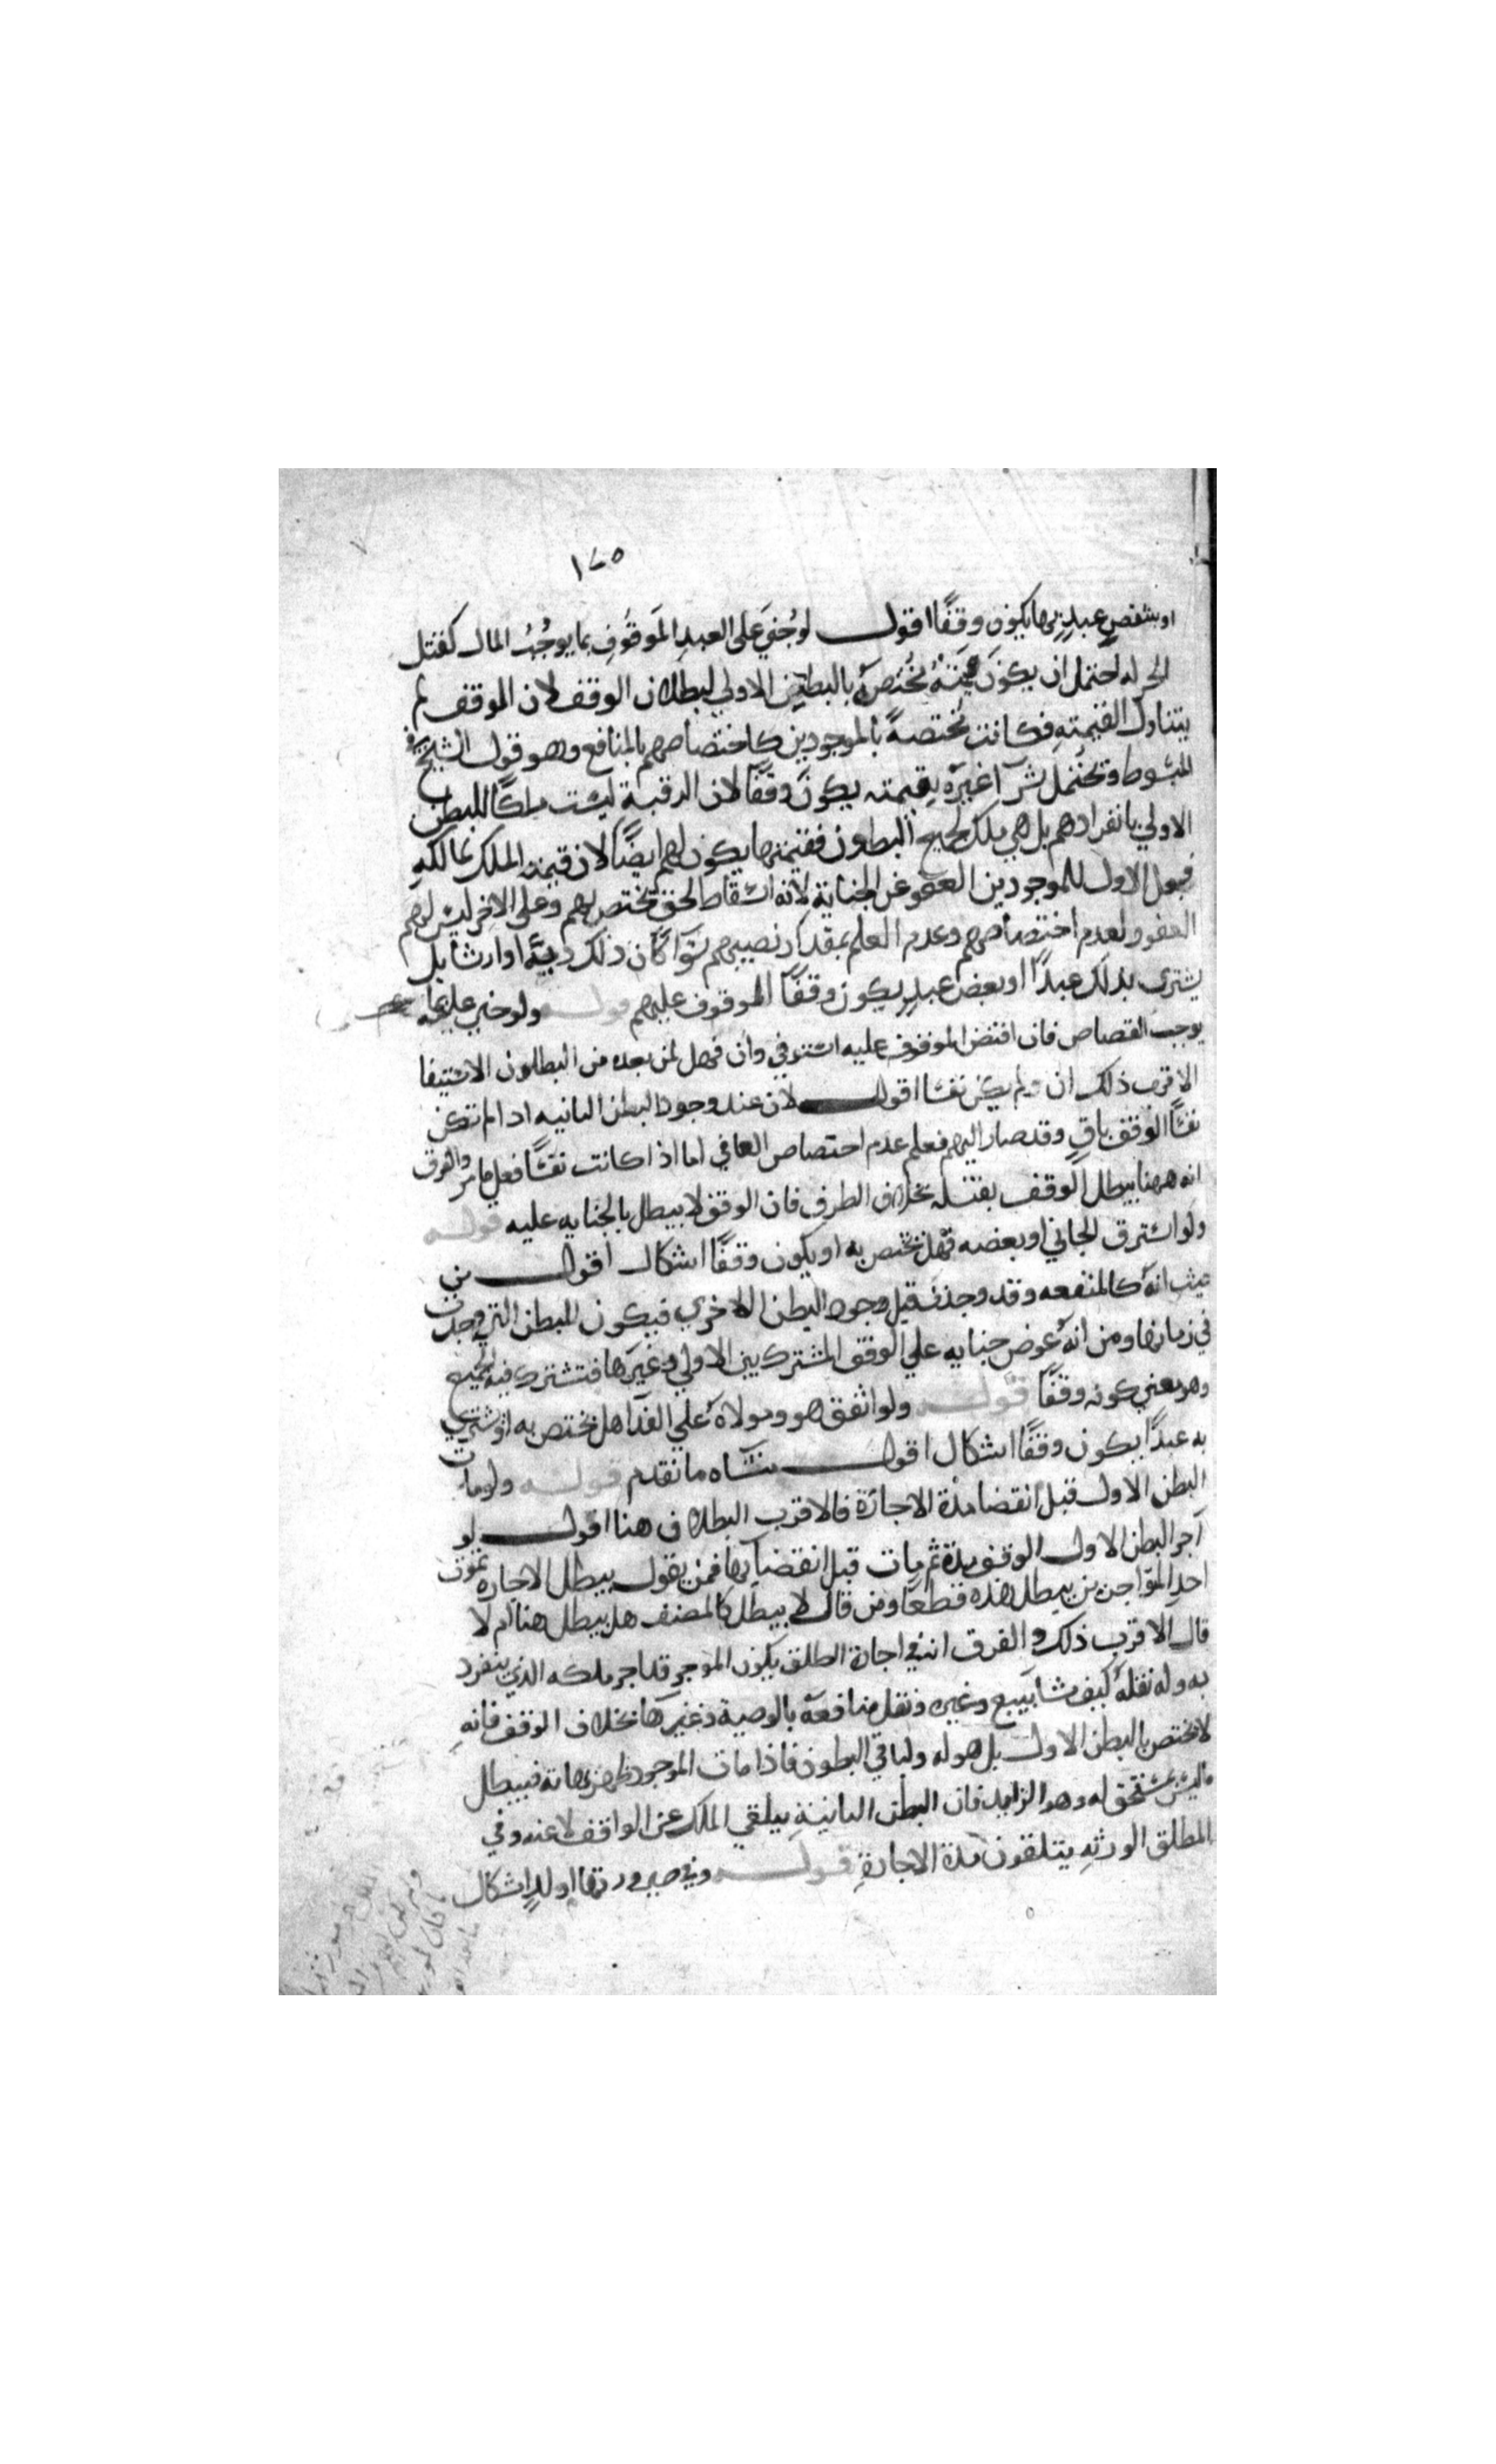 ١٧٥
او بشقص عبد بها يكون وقفًا اقول لو جُني على العبدِ الموقوفِ بما يوجُبُ المال كقتل
الحر له احتمل ان يكون قيمته مُختصةً بالبطن الاولي لبطلان الوقف لان الوقف لم
يتناول القيمتهِ فكانت مختصةً بالموجودين كاختصاصهم بالمنافع وهو قول الشيخ في
المبسوط ويحتمل شرآ غيره بقيمته يكون وقفًا لان الرقبة ليست ملكًا للبطن
الاولي بانفرادهم بل هي ملك لجميع البطون فقيمتها يكون لهم ايضًا لان قيمة الملك لمالكهِ
فبعول الاول للموجودين العفو عن الجناية لانه اسقاط لحق مختص بهم وعلى الاخر ليس لهم
العفو ولعدم اختصاصهم وعدم العلم بمقدار نصيبهم سَوآ كان ذلك ديةً او ارشا بل
يشترى بذلك عبدًا او بعض عبدٍ يكون وقفًا الموقوف عليهم قوله ولو جني عليه بما
يوجب القصاص فان اقتص الموقوف عليه استوفي وان فهل لمن بعده من البطون الاستيفا
الاقرب ذلك ان لم يكن نفسًا اقول لان عند وجود البطن الثانيه اذا لم تكن
نفسًا الوقف باقٍ وقد صار اليهم فعلم عدم اختصاص العافي اما اذا كانت نفسًا فعلى ما مر والفرق
انه ههنا يبطل الوقف بقتله بخلاف الطرف فان الوقف لا يبطل بالجنايه عليه قوله
ولو استرق الجاني او بعضه فهل يختص به او يكون وقفًا اشكال اقول من
حيث انه كالمنفعه وقد وجدت قبل وجود البطن الاخري فيكون للبطن التي وجدت
في زمانها ومن انه عوض جنايه علي الوقف المشترك بين الاولي وغيرها فتشترك فيه الجميع
وهو معني كونه وقفًا قوله ولو اتفق هو ومولاه علي الفدآ هل يختص به او يشتري
به عبدًا يكون وقفًا اشكال اقول منشاه ما تقدم قوله ولو مات
البطن الاول قبل انقضا مدة الاجارة فالاقرب البطلان هنا اقول لو
آجر البطن الاول الوقف مدة ثم مات قبل انقضايها فمن يقول يبطل الاجاره بموت
احد المواجرين يبطل هذه قطعًا ومن قال لا يبطل كالمصنف هل يبطل هنا ام لا
قال الاقرب ذلك والفرق انه في اجارة الطلق يكون الموجر قد اجر ملكه الذي ينفرد
به وله نقله كيف شا ببيع وغيره ونقل منافعه بالوصية وغيرها بخلاف الوقف فانه
لا يختص بالبطن الاول بل هو له ولباقي البطون فاذا مات الموجود ظهر فيبطل
ما ليس بمستحق له وهو الزايد فان البطن الثانيةِ يتلقي الملك عن الواقف لا عنه وفي
المطلق الورثهِ يتلقون مدة الاجارةِ قوله وفي صيرورتها ام ولدٍ اشكال